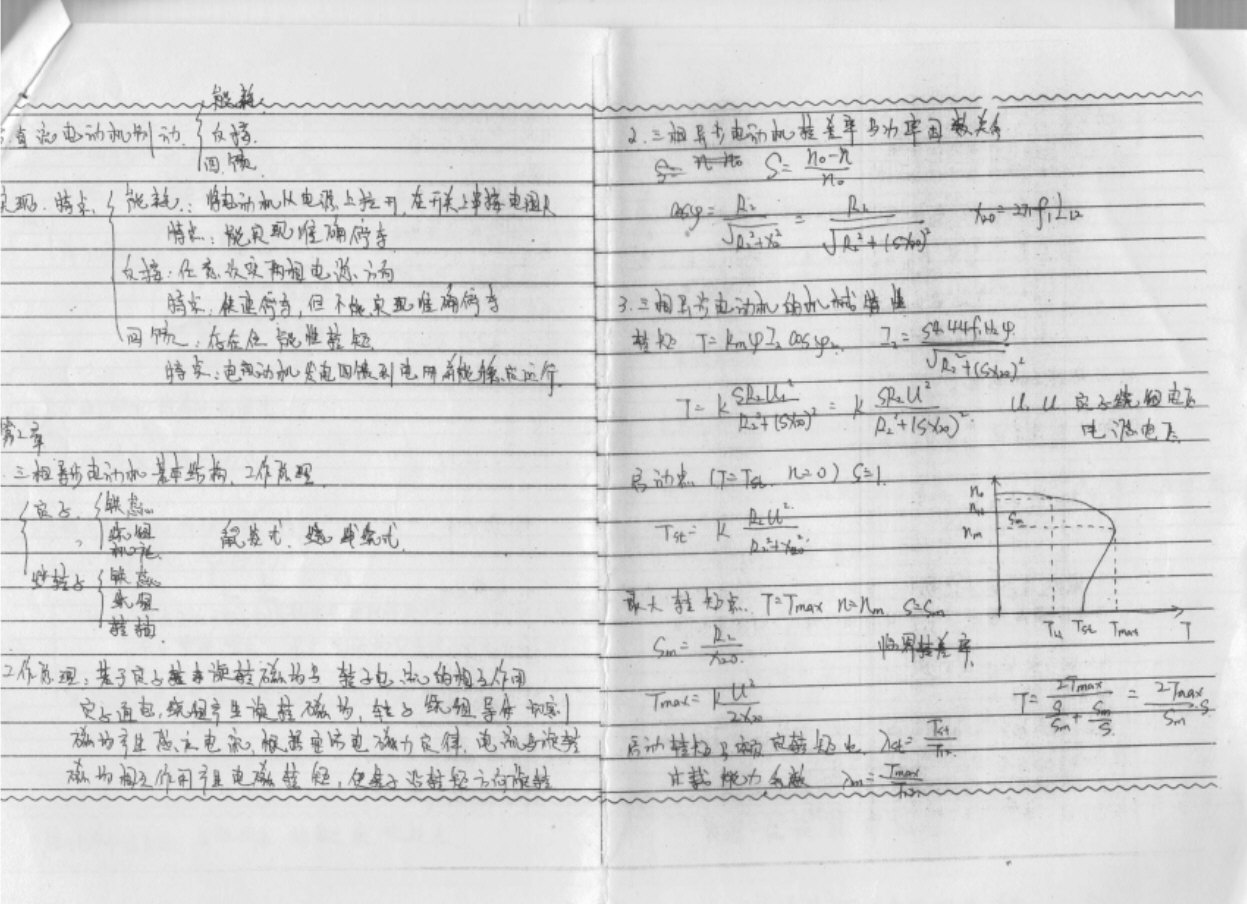 直流电动机制动 { 能耗
反接
回馈
实现、特点 { 能耗：将电动机从电源上拉开，在开关上串接电阻R
特点：能实现准确停车
反接：任意改变两相电源方向
特点：快速停车，但不能实现准确停车
回馈：存在位能性转矩
特点：电动机发电回馈到电网
第2章
三相异步电动机基本结构、工作原理
{ 定子 { 铁芯
绕组
机座
转子 { 铁芯
绕组
转轴
鼠笼式、线绕式
工作原理：基于定子旋转磁场与转子电流的相互作用
定子通电，绕组产生旋转磁场，转子绕组导体切割
磁场产生感应电流，根据电磁力定律，电流与旋转
磁场相互作用产生电磁转矩，使转子沿转矩方向旋转
2.三相异步电动机转差率与功率因数关系
S= n n₀ S= (n₀-n)/n₀
cosφ= R₂/√(R₂²+X₂²) = R₂/√(R₂²+(SX₂₀)²) X₂₀=2πf₁L₁₂
3.三相异步电动机的机械特性
转矩 T=KmφI₂cosφ₂ I₂= S4.44f₁N₂φ/√(R₂²+(SX₂₀)²)
T= K SR₂U₁²/(R₂²+(SX₂₀)²) = K SR₂U²/(R₂²+(SX₂₀)²) U₁ U 定子绕组电压
电源电压
启动点 (T=Tst, n=0) S=1
Tst= K R₂U²/(R₂²+X₂₀²)
n₀
Sm
nm
TN Tst Tmax T
最大转矩点 T=Tmax n=nm S=Sm
Sm= R₂/X₂₀ 临界转差率
Tmax= K U²/2X₂₀ T= 2Tmax/(S/Sm + Sm/S) = 2Tmax/Sm · S
启动转矩与额定转矩比 λst= Tst/TN
过载能力系数 λm= Tmax/TN